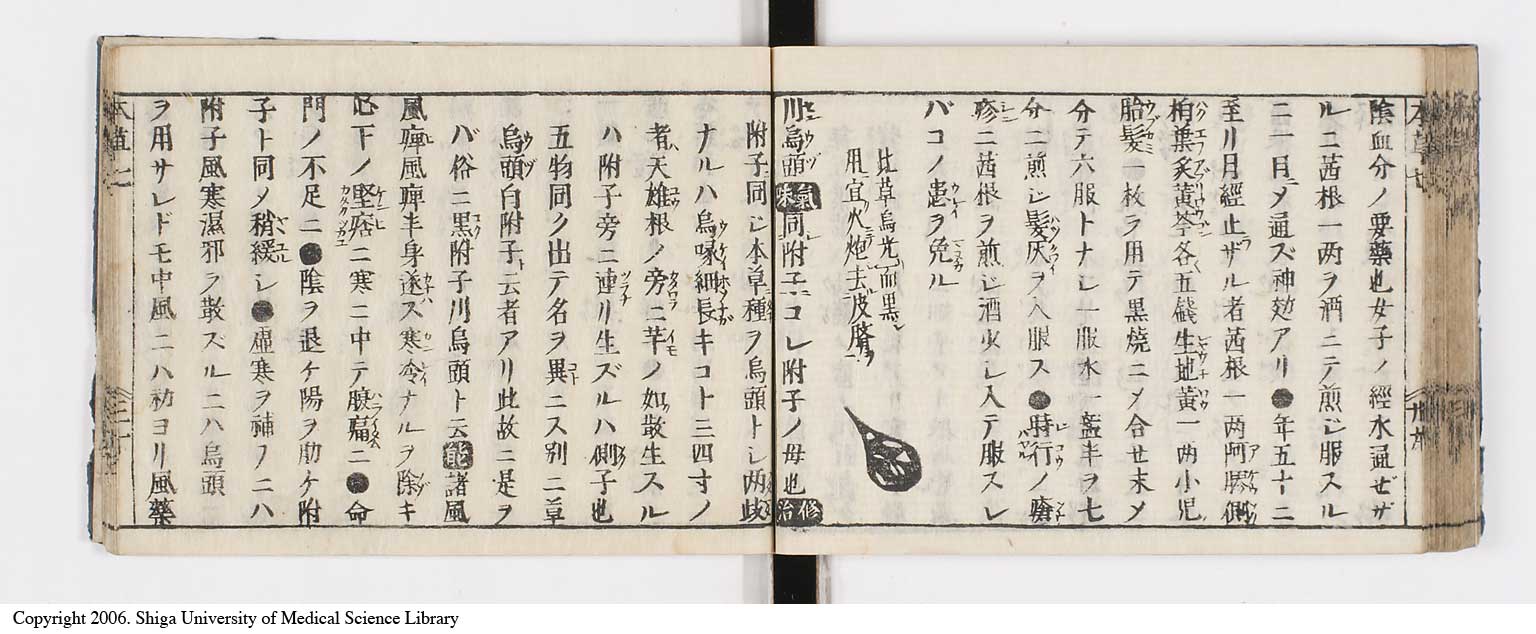 陰血分ノ要藥也女子ノ經水通ぜザ
ルニ茜根一两ヲ酒ニテ煎じ服スル
ニ一日メ通ズ神効アリ●年五十ニ
至リ月經止ザル者茜根一两阿膠側
栢葉炙黄芩各五戔生地黄一两小児
胎髪一枚ヲ用テ黒燒ニメ合セ末メ
分テ六服トナし一服水一盞半ヲ七
分ニ煎じ髪灰ヲ入服ス●時行ノ瘡
疹ニ茜根ヲ煎じ酒少し入テ服スレ
バコノ患ヲ免ル
此草烏光而黒
用宜火炮去皮臍
川烏頭氣味同附子コレ附子ノ母也修治
附子同じ本草種ヲ烏頭トし两歧
ナルハ烏喙細長キコト三四寸ノ
者天雄根ノ旁ニ芋ノ如散生スル
ハ附子旁ニ連リ生ズルハ側子也
五物同ク出テ名ヲ異ニス別ニ草
烏頭白附子云者アリ此故ニ是ヲ
バ俗ニ黒附子川烏頭ト云能諸風
風痺風痹半身遂ス寒冷ナルヲ除キ
心下ノ堅痞ニ寒ニ中テ腹痛ニ●命
門ノ不足ニ●陰ヲ退ケ陽ヲ助ケ附
子ト同メ稍緩し●虚寒ヲ補フニハ
附子風寒濕邪ヲ散ズルニハ烏頭
ヲ用サレドモ中風ニハ初ヨリ風藥
Copyright 2006. Shiga University of Medical Science Library